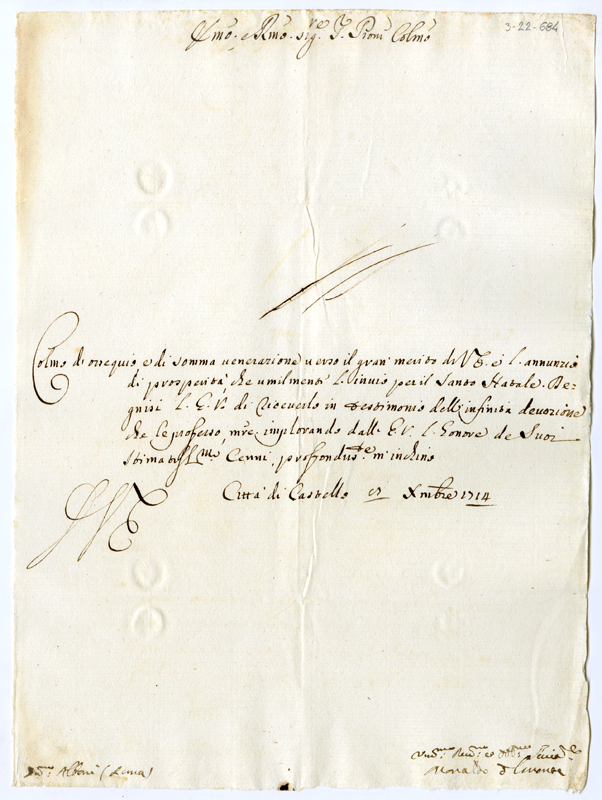 3-22-684
Emo. e Rmo. sig.re P. Proni Colmo
Colmo di ossequio, e di somma venerazione verso il gran merito di V.E. è l'annunzio
di prosperità che umilmente L'invio per il Santo Natale. De-
gnisi L. E. V. di riceverlo in testimonio dell'infinita devozione
che le professo mre implorando dall. E.V. l'honore de Suoi
stimatiss.mi Cenni, profondis.te m'inchino
Città di Castello Xmbre 1714
Albani (Roma)